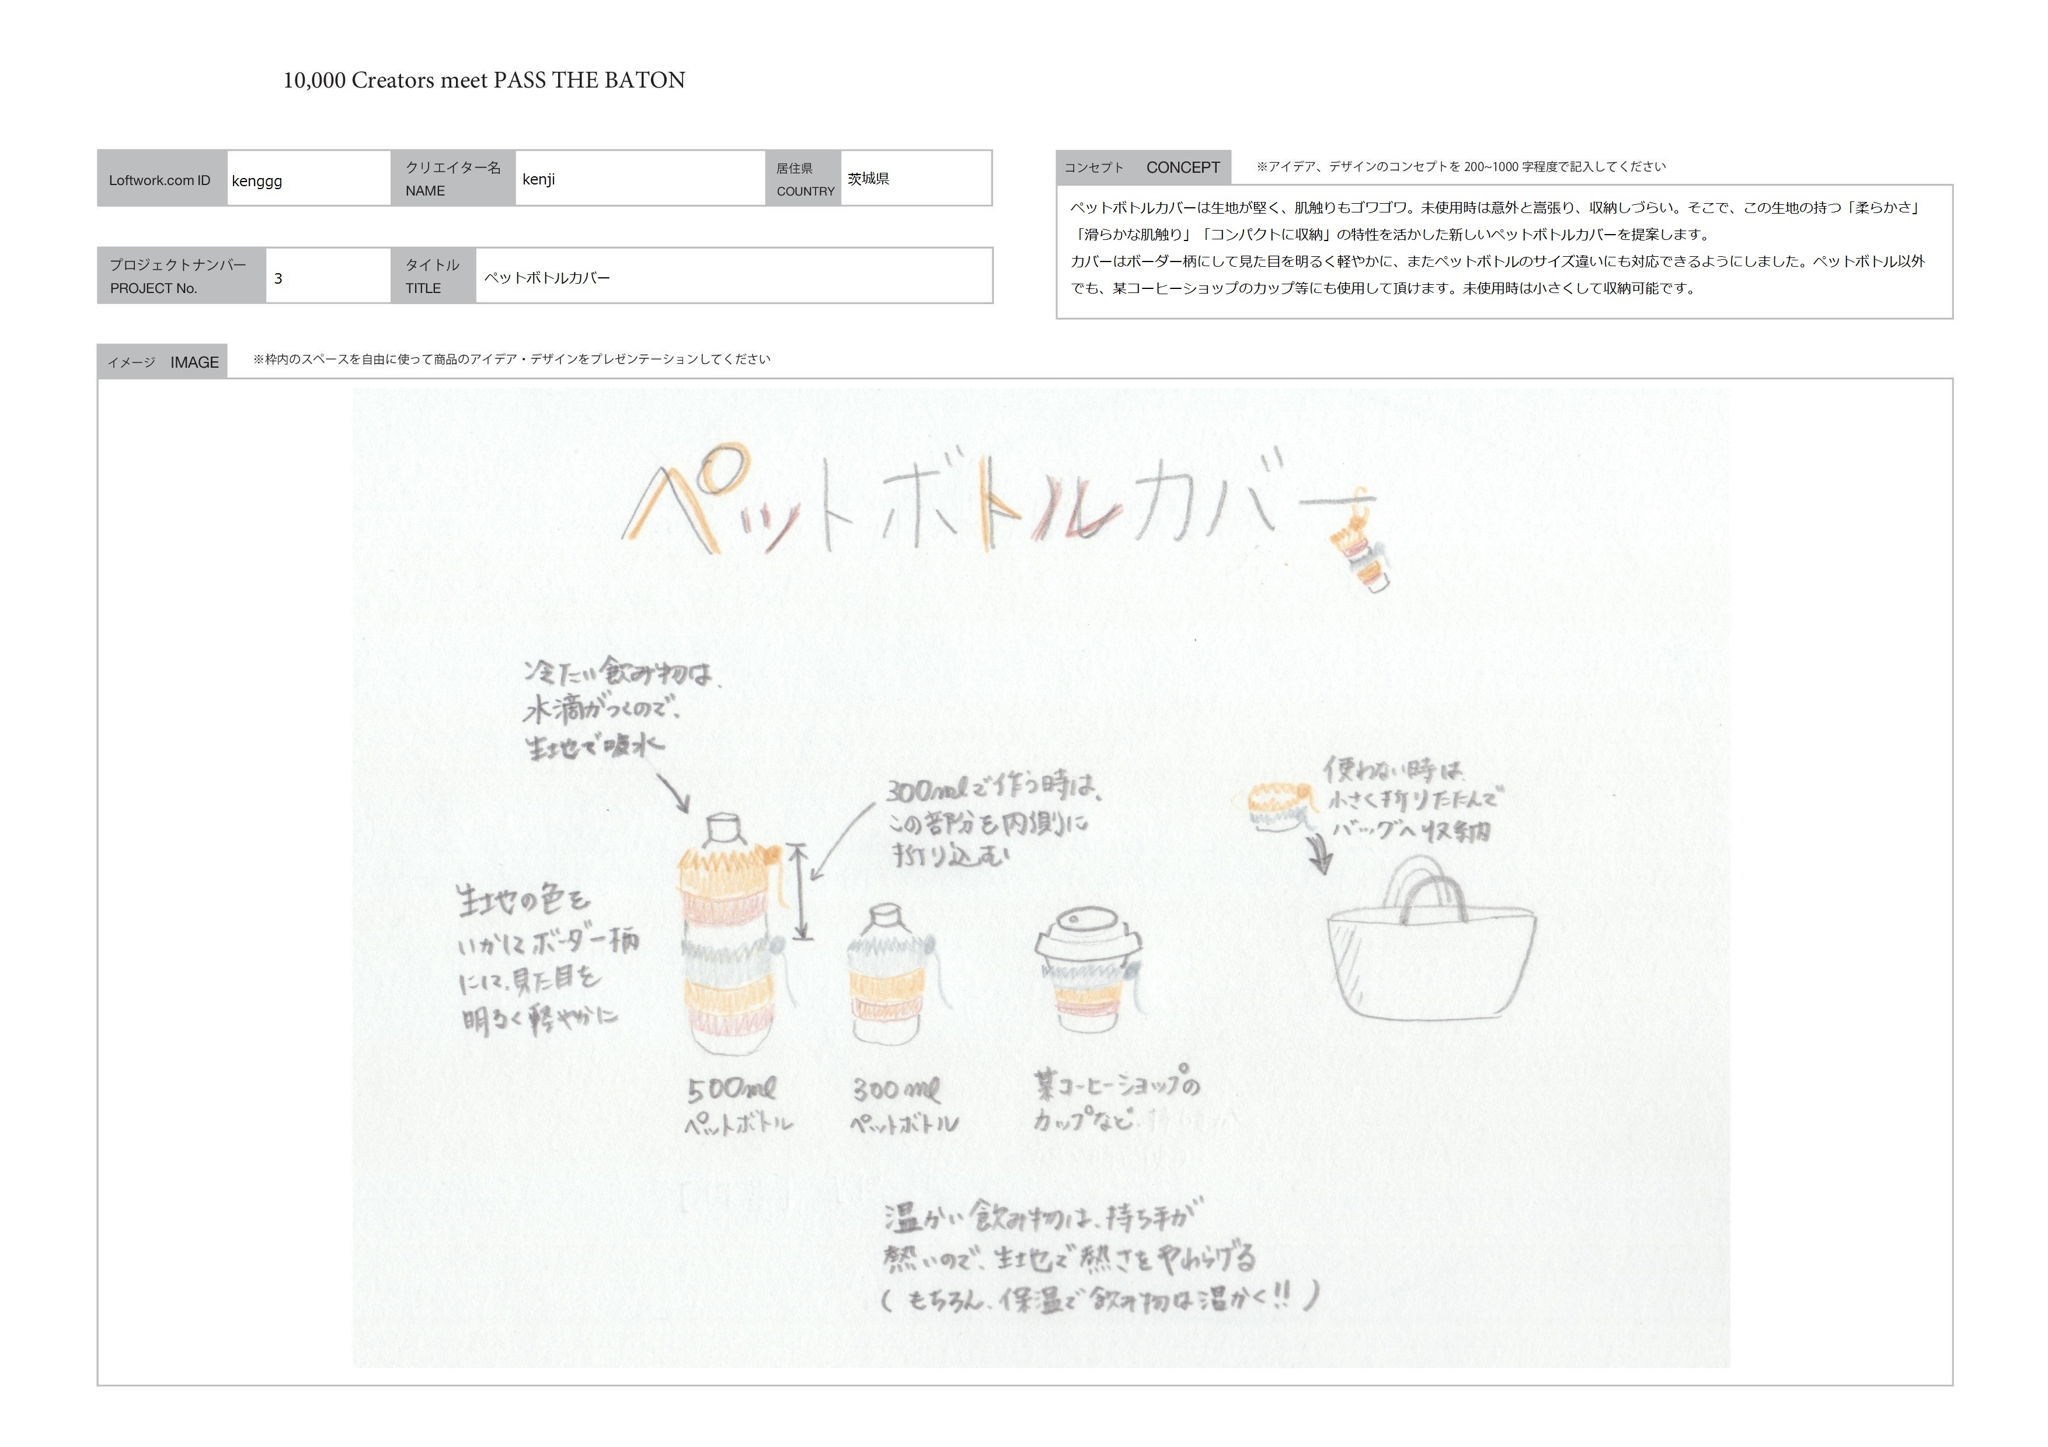 10,000 Creators meet PASS THE BATON
Loftwork.com ID
kenggg
クリエイター名
NAME
kenji
居住県
COUNTRY
茨城県
プロジェクトナンバー
PROJECT No.
3
タイトル
TITLE
ペットボトルカバー
コンセプト CONCEPT
※アイデア、デザインのコンセプトを 200~1000 字程度で記入してください
ペットボトルカバーは生地が堅く、肌触りもゴワゴワ。未使用時は意外と嵩張り、収納しづらい。そこで、この生地の持つ「柔らかさ」
「滑らかな肌触り」「コンパクトに収納」の特性を活かした新しいペットボトルカバーを提案します。
カバーはボーダー柄にして見た目を明るく軽やかに、またペットボトルのサイズ違いにも対応できるようにしました。ペットボトル以外
でも、某コーヒーショップのカップ等にも使用して頂けます。未使用時は小さくして収納可能です。
イメージ IMAGE
※枠内のスペースを自由に使って商品のアイデア・デザインをプレゼンテーションしてください
ペットボトルカバー
冷たい飲み物は、
水滴がつくので、
生地で吸水
300mlで作る時は、
この部分を内側に
折り込む
使わない時は
小さく折りたたんで
バッグへ収納
生地の色を
いかしてボーダー柄
にし、見た目を
明るく軽やかに
500ml
ペットボトル
300ml
ペットボトル
某コーヒーショップの
カップなど
温かい飲み物は、持ち手が
熱いので、生地で熱さをやわらげる
(もちろん、保温で飲み物は温かく!!)